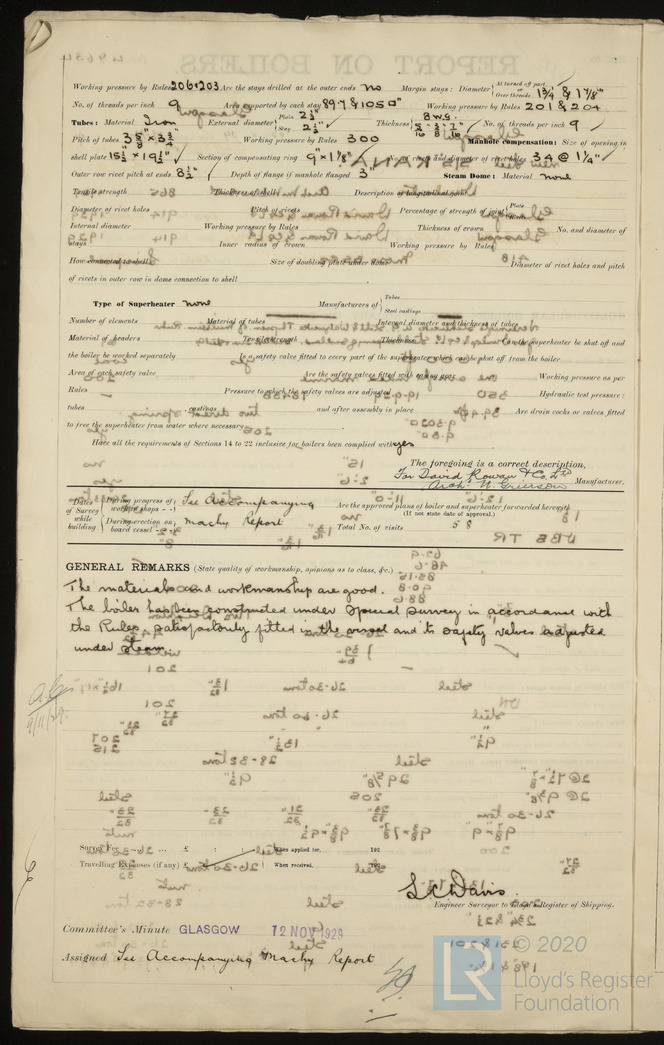 Working pressure by Rules 206 & 203 Are the stays drilled at the outer ends no Margin stays: Diameter { At turned off part, or Over threads 1 3/4" & 1 7/8"
No. of threads per inch 9 Area supported by each stay 89.7 & 105.0 □" Working pressure by Rules 201 & 204
Tubes: Material Iron External diameter { Plain 2 1/2" Stay 2 1/2" Thickness { 8 w.g. 5/16 3/8 7/16" No. of threads per inch 9
Pitch of tubes 3 5/8" x 3 3/4" Working pressure by Rules 300 Manhole compensation: Size of opening in
shell plate 15 1/2" x 19 1/2" Section of compensating ring 9" x 1 1/8" No. of rivets and diameter of rivet holes 34 @ 1 1/4"
Outer row rivet pitch at ends 8 1/2" Depth of flange if manhole flanged 3" Steam Dome: Material none
Tensile strength Thickness of shell Description of longitudinal joint
Diameter of rivet holes Pitch of rivets Percentage of strength of joint { Plate Rivets
Internal diameter Working pressure by Rules Thickness of crown No. and diameter of
stays Inner radius of crown Working pressure by Rules
How connected to shell Size of doubling plate under dome Diameter of rivet holes and pitch
of rivets in outer row in dome connection to shell
Type of Superheater none Manufacturers of { Tubes Steel castings
Number of elements Material of tubes Internal diameter and thickness of tubes
Material of headers Tensile strength Thickness Can the superheater be shut off and
the boiler be worked separately Is a safety valve fitted to every part of the superheater which can be shut off from the boiler
Area of each safety valve Are the safety valves fitted with easing gear Working pressure as per
Rules Pressure to which the safety valves are adjusted Hydraulic test pressure:
tubes castings and after assembly in place Are drain cocks or valves fitted
to free the superheater from water where necessary
Have all the requirements of Sections 14 to 22 inclusive for boilers been complied with yes
The foregoing is a correct description,
For David Rowan & Co. Ltd
Arch. W. Grierson Manufacturer.
Dates of Survey while building { During progress of work in shops - - } See Accompanying Are the approved plans of boiler and superheater forwarded herewith
(If not state date of approval.)
During erection on board vessel - - - } Machy Report Total No. of visits 58
GENERAL REMARKS (State quality of workmanship, opinions as to class, &c.)
The materials and workmanship are good.
The boiler has been constructed under Special Survey in accordance with
the Rules, satisfactorily fitted in the vessel and its safety valves adjusted
under steam.
9/11/29.
Survey Fee ... ... £ : : When applied for, 192
Travelling Expenses (if any) £ : : When received, 192
L.C. Davis.
Engineer Surveyor to Lloyd's Register of Shipping.
Committee's Minute GLASGOW 12 NOV 1929
Assigned See Accompanying Machy Report
© 2020
LR Lloyd's Register
Foundation